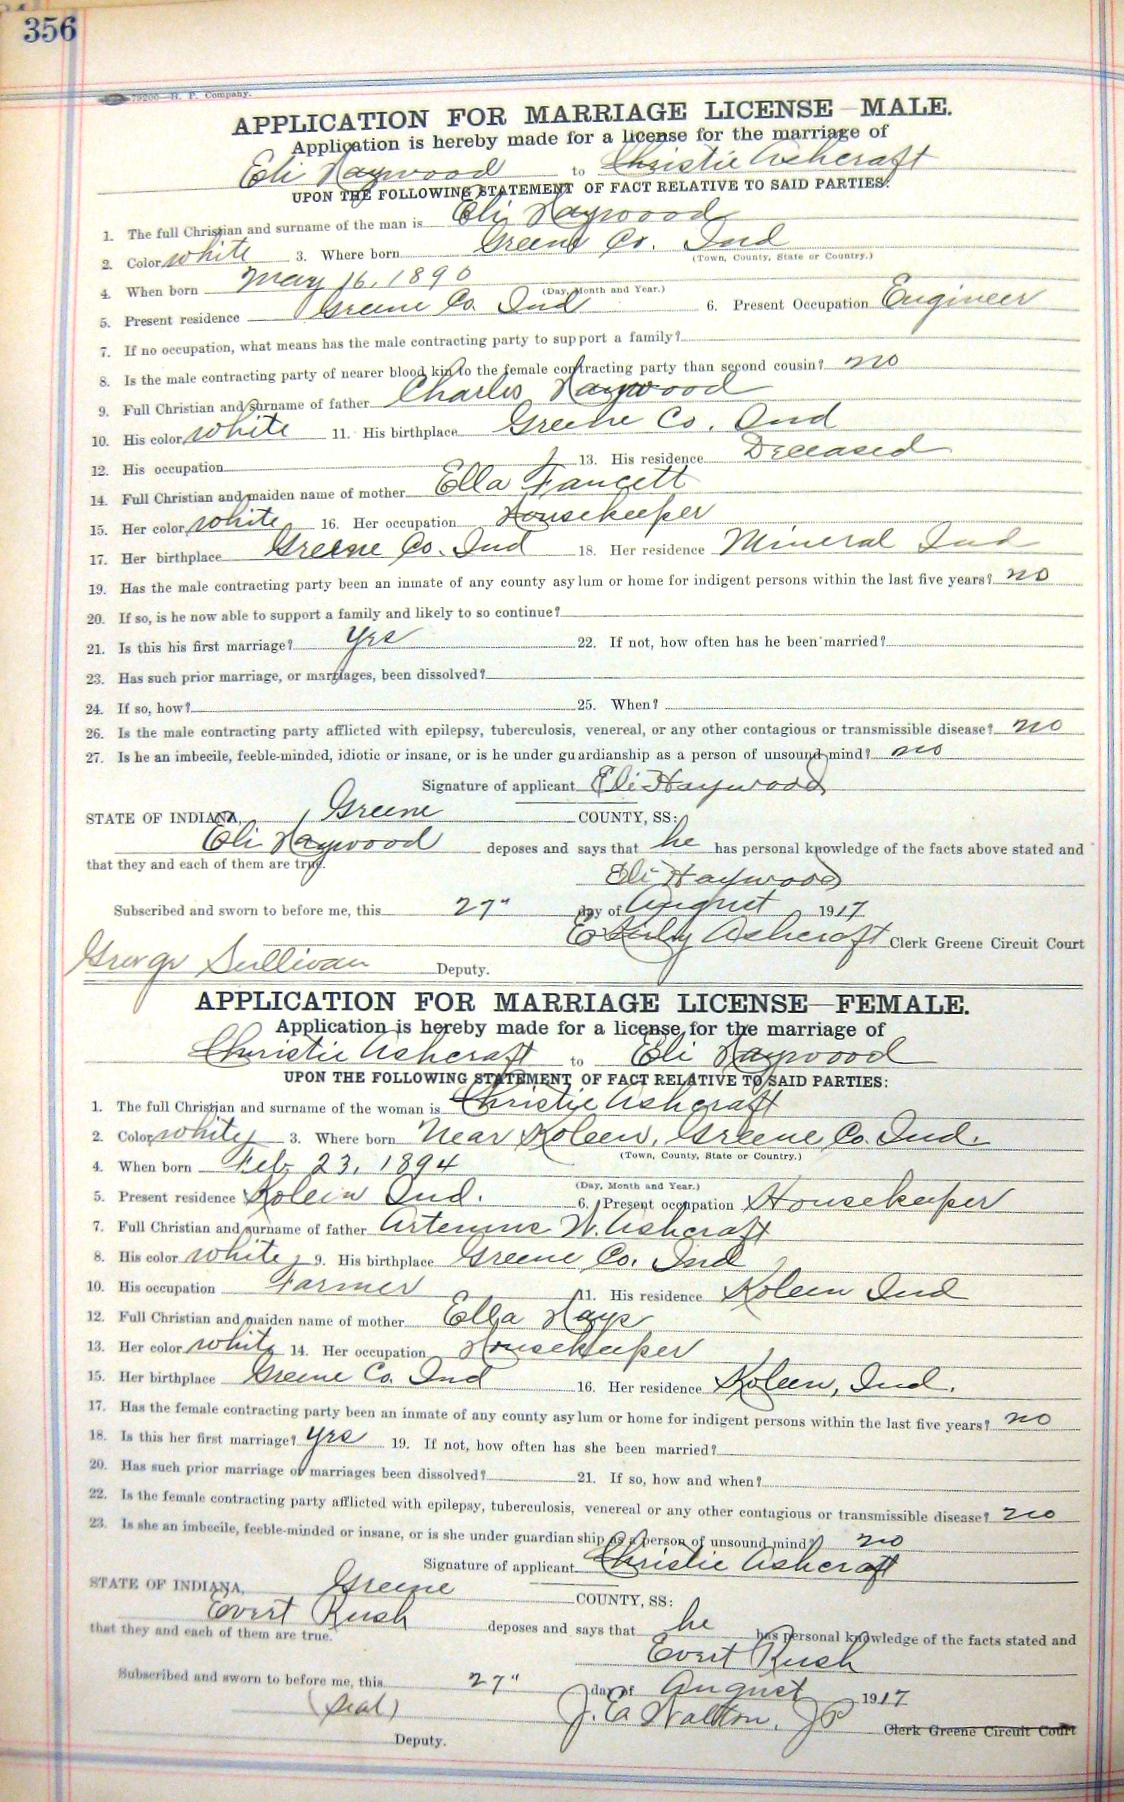 356
79200—B. F. Company.
APPLICATION FOR MARRIAGE LICENSE—MALE.
Application is hereby made for a license for the marriage of
Eli Haywood to Christie Ashcraft
UPON THE FOLLOWING STATEMENT OF FACT RELATIVE TO SAID PARTIES:
1. The full Christian and surname of the man is Eli Haywood
2. Color white 3. Where born Greene Co. Ind
(Town, County, State or Country.)
4. When born May 16, 1890
(Day, Month and Year.)
5. Present residence Greene Co. Ind 6. Present Occupation Engineer
7. If no occupation, what means has the male contracting party to support a family?
8. Is the male contracting party of nearer blood kin to the female contracting party than second cousin? no
9. Full Christian and surname of father Charles Haywood
10. His color white 11. His birthplace Greene Co. Ind
12. His occupation 13. His residence Deceased
14. Full Christian and maiden name of mother Ella Faucett
15. Her color white 16. Her occupation Housekeeper
17. Her birthplace Greene Co. Ind 18. Her residence Mineral Ind
19. Has the male contracting party been an inmate of any county asylum or home for indigent persons within the last five years? no
20. If so, is he now able to support a family and likely to so continue?
21. Is this his first marriage? yes 22. If not, how often has he been married?
23. Has such prior marriage, or marriages, been dissolved?
24. If so, how? 25. When?
26. Is the male contracting party afflicted with epilepsy, tuberculosis, venereal, or any other contagious or transmissible disease? no
27. Is he an imbecile, feeble-minded, idiotic or insane, or is he under guardianship as a person of unsound mind? no
Signature of applicant Eli Haywood
STATE OF INDIANA, Greene COUNTY, SS:
Eli Haywood deposes and says that he has personal knowledge of the facts above stated and
that they and each of them are true.
Eli Haywood
Subscribed and sworn to before me, this 27" day of August 1917
E Ashcraft Clerk Greene Circuit Court
George Sullivan Deputy.
APPLICATION FOR MARRIAGE LICENSE—FEMALE.
Application is hereby made for a license for the marriage of
Christie Ashcraft to Eli Haywood
UPON THE FOLLOWING STATEMENT OF FACT RELATIVE TO SAID PARTIES:
1. The full Christian and surname of the woman is Christie Ashcraft
2. Color white 3. Where born Near Koleen, Greene Co. Ind.
(Town, County, State or Country.)
4. When born Feb 23, 1894
(Day, Month and Year.)
5. Present residence Koleen Ind. 6. Present occupation Housekeeper
7. Full Christian and surname of father Artemus W. Ashcraft
8. His color white 9. His birthplace Greene Co. Ind
10. His occupation Farmer 11. His residence Koleen Ind
12. Full Christian and maiden name of mother Ella Hays
13. Her color white 14. Her occupation Housekeeper
15. Her birthplace Greene Co. Ind 16. Her residence Koleen, Ind.
17. Has the female contracting party been an inmate of any county asylum or home for indigent persons within the last five years? no
18. Is this her first marriage? yes 19. If not, how often has she been married?
20. Has such prior marriage or marriages been dissolved? 21. If so, how and when?
22. Is the female contracting party afflicted with epilepsy, tuberculosis, venereal or any other contagious or transmissible disease? no
23. Is she an imbecile, feeble-minded or insane, or is she under guardianship as a person of unsound mind? no
Signature of applicant Christie Ashcraft
STATE OF INDIANA, Greene COUNTY, SS:
Evert Rush deposes and says that he has personal knowledge of the facts stated and
that they and each of them are true.
Evert Rush
Subscribed and sworn to before me, this 27" day of August 1917
(Seal) J. E. Walton, JP Clerk Greene Circuit Court
Deputy.